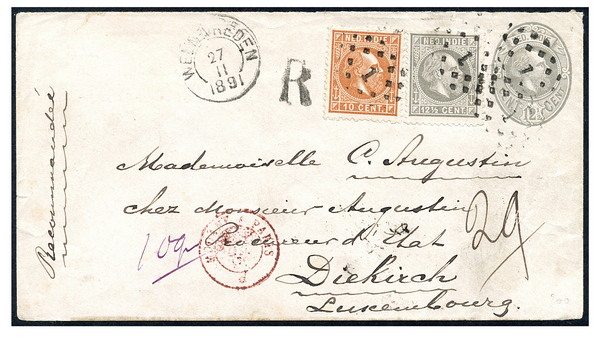 WELTEVREDEN
27
11
1891
R
NED-INDIE
10 CENT.
NED-INDIE
12½ CENT.
12½
CENT
1
1
1
Recommandée
Mademoiselle C. Augustin
chez Monsieur Augustin
Procureur d'Etat
Diekirch
Luxembourg.
29
PARIS